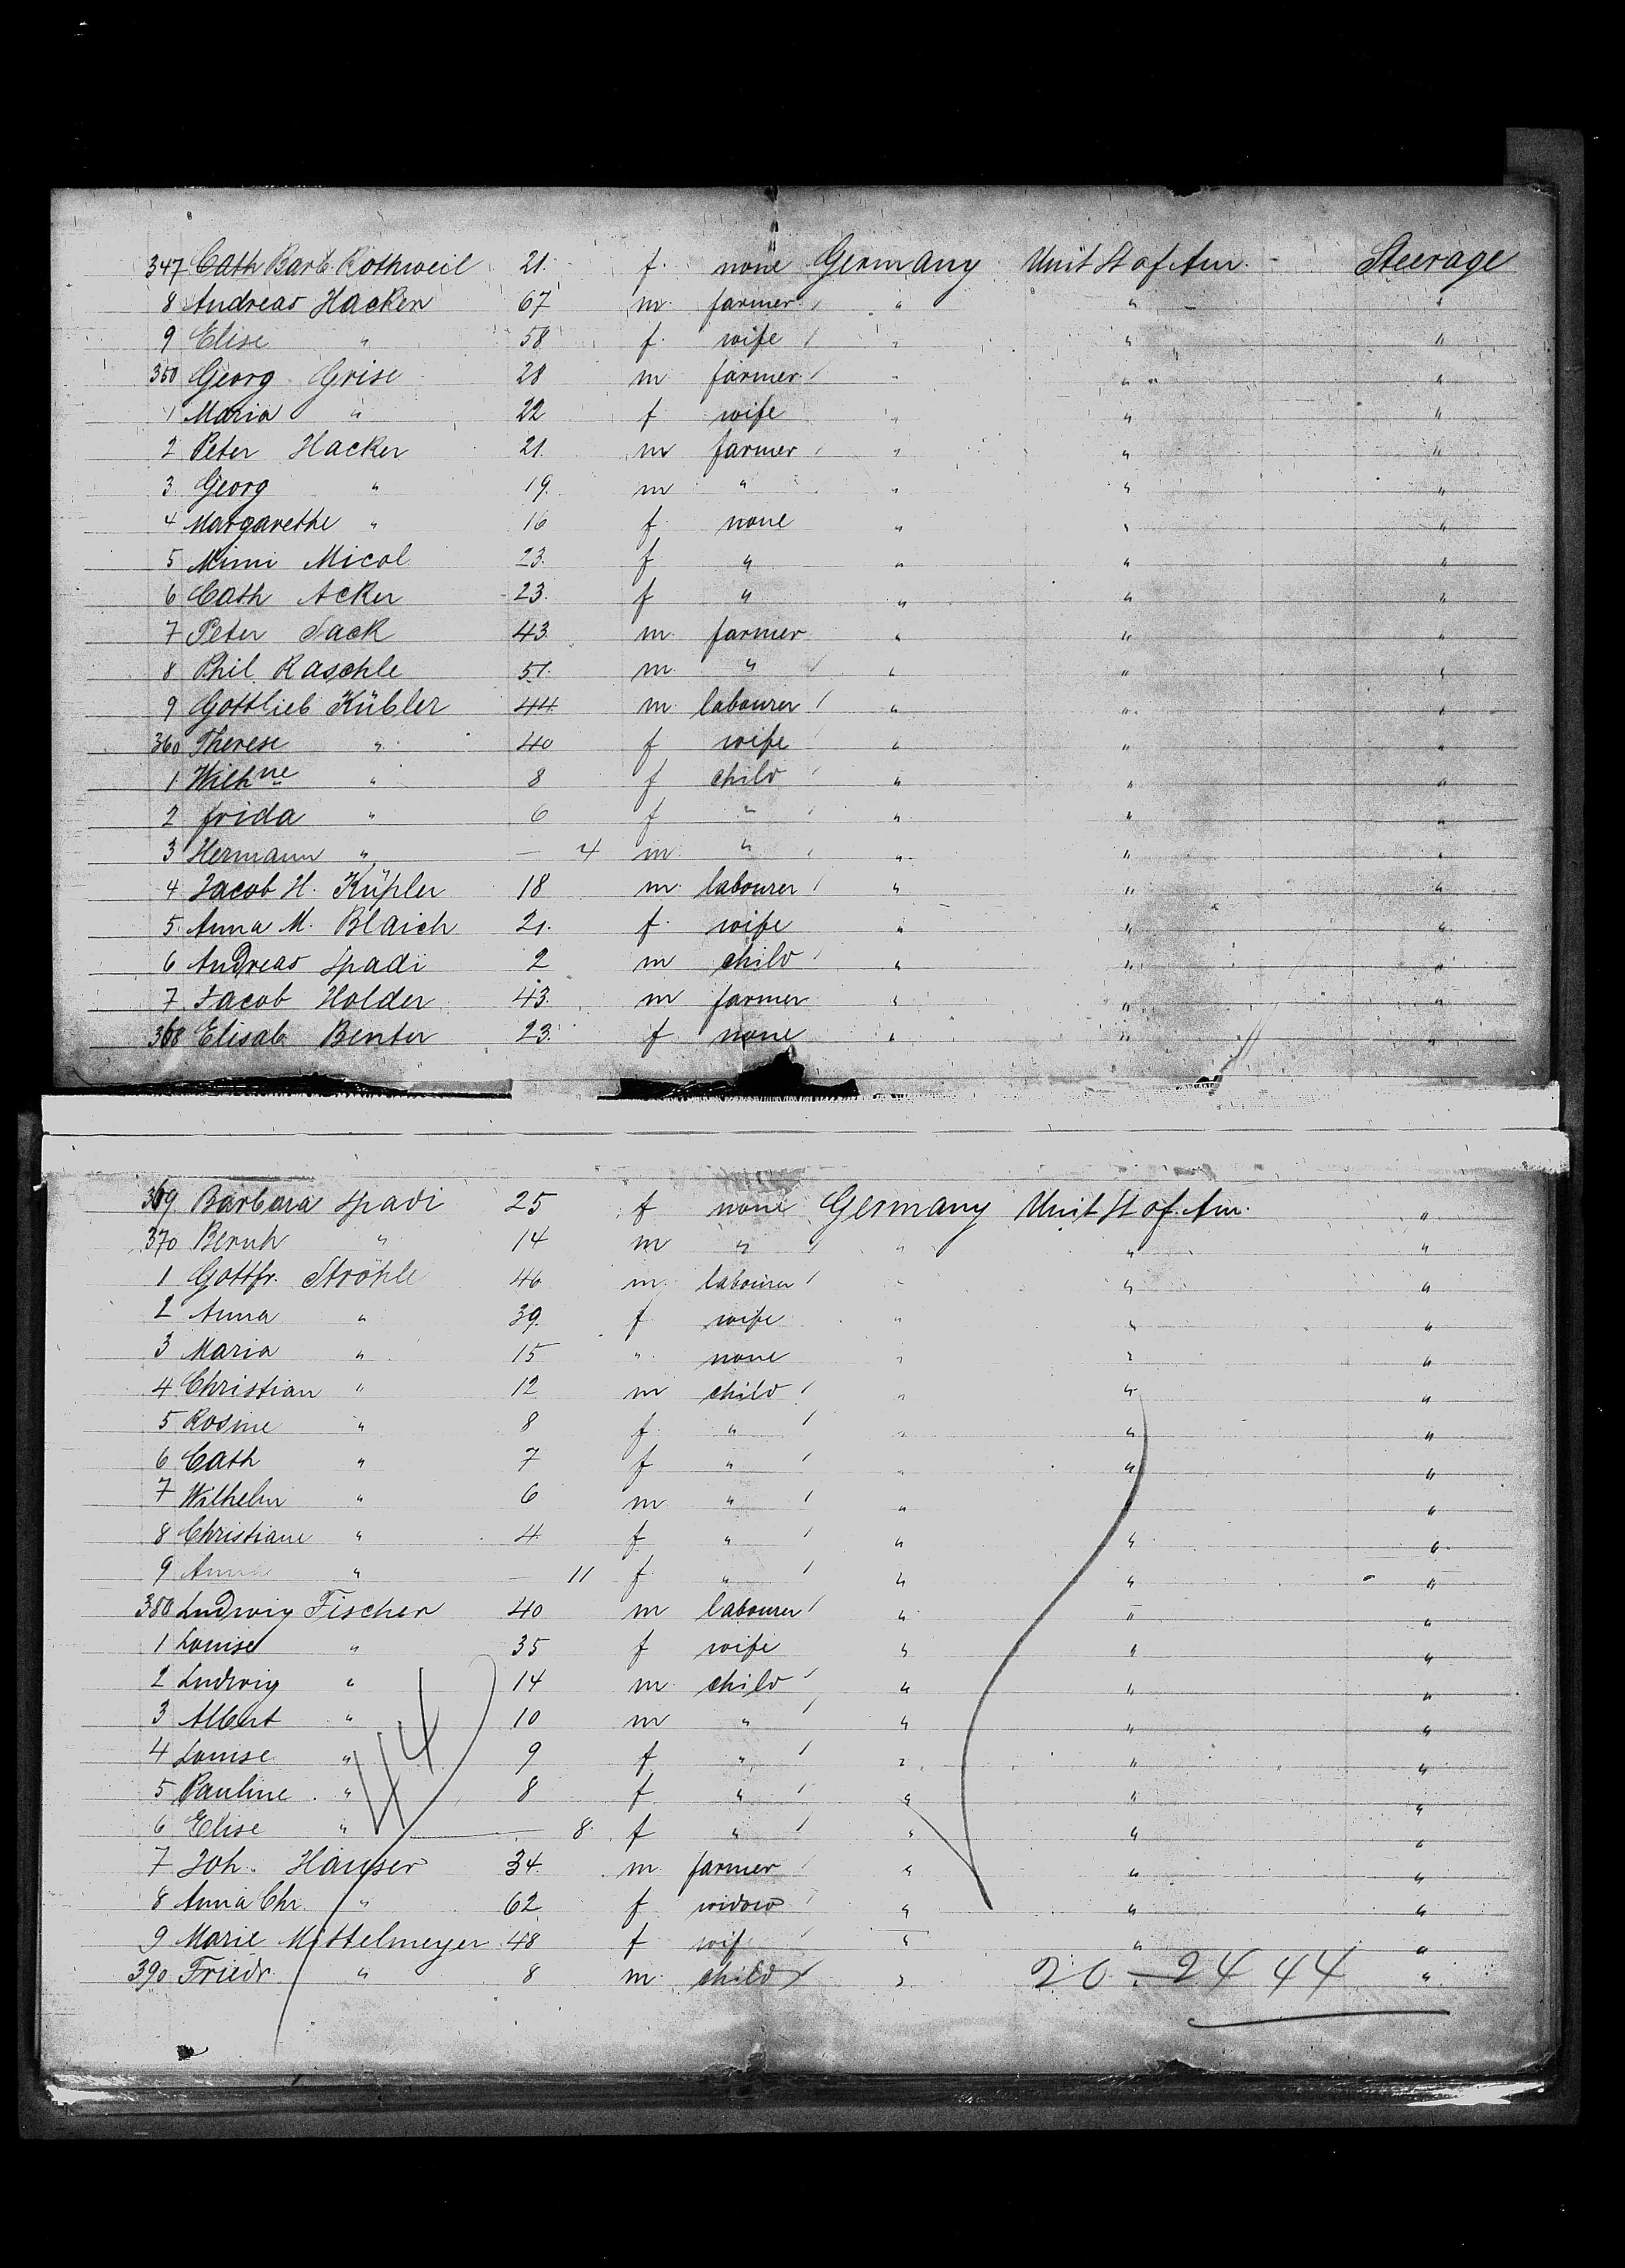 347 Cath Barb. Rothweil 21. f. none Germany Unit St of Am. - Steerage
8 Andreas Hacker 67 m. farmer " " "
9 Elise " 58 f. wife " " "
350 Georg Grise 28 m farmer " " "
1 Maria " 22 f wife " " "
2 Peter Hacker 21. m farmer " " "
3 Georg " 19. m " " " "
4 Margarethe " 16 f none " " "
5 Mimi Micol 23. f " " " "
6 Cath Acker 23. f " " " "
7 Peter Sack 43. m. farmer " " "
8 Phil. Raschle 51. m. " " " "
9 Gottlieb Kübler 44 m. labourer " " "
360 Therese " 40 f wife " " "
1 Wilhne " 8 f child " " "
2 Frida " 6 f " " " "
3 Hermann " — 4 m. " " " "
4 Jacob H. Küfler 18 m. labourer " " "
5. Anna M. Blaich 21. f. wife " " "
6 Andreas Spadi 2 m child " " "
7 Jacob Holder 43. m farmer " " "
368 Elisab. Benter 23. f none " " "
369 Barbara Spadi 25 f none Germany Unit St of. Am. "
370 Bernh " 14 m " " " "
1 Gottfr. Ströhle 46 m. labourer " " "
2 Anna " 39. f wife " " "
3 Maria " 15 " none " " "
4 Christian " 12 m child " " "
5 Rosine " 8 f. " " " "
6 Cath " 7 f " " " "
7 Wilhelm " 6 m " " " "
8 Christiane " 4 f " " " "
9 " — 11 f. " " " "
380 Ludwig Fischer 40 m labourer " " "
1 Louise " 35 f wife " " "
2 Ludwig " 14 m. child " " "
3 Albert " 10 m " " " "
4 Louise " 9 f " " " "
5 Pauline " 8 f " " " "
6 Elise " — 8. f " " " "
7 Joh. Hauser 34. m. farmer " " "
8 Anna Chr. " 62 f widow " " "
9 Marie Mittelmeyer 48 f wife " " "
390 Friedr. " 8 m. child " " "
44
20 - 24 44